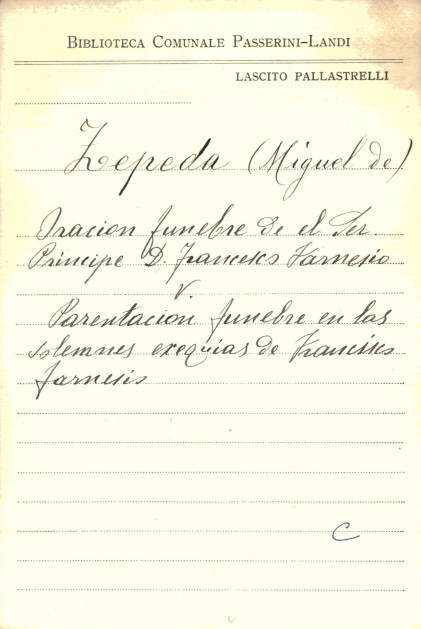 BIBLIOTECA COMUNALE PASSERINI-LANDI
LASCITO PALLASTRELLI
Zepeda (Miguel de)
Oracion funebre de el Ser.
Principe D. Francesco Farnesio
V.
Parentacion funebre en las
solemnes exequias de Francisco
Farnesio
C